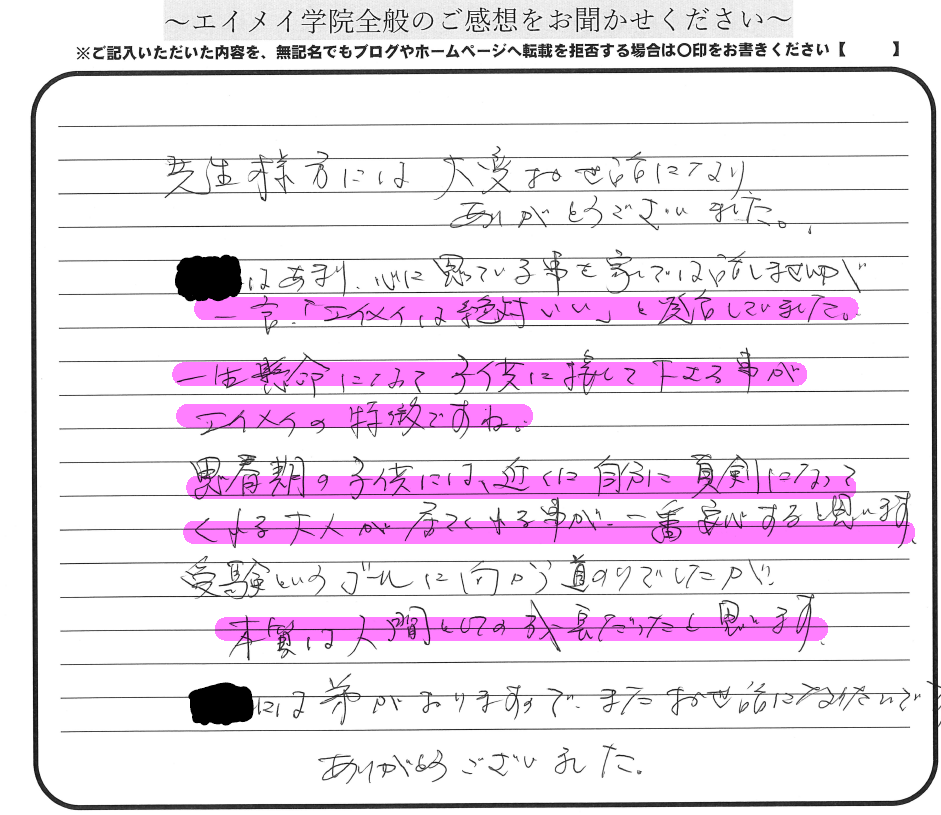 ～エイメイ学院全般のご感想をお聞かせください～
※ご記入いただいた内容を、無記名でもブログやホームページへ転載を拒否する場合は〇印をお書きください【　　】
先生様方には 大変お世話になり
ありがとうございました。
はあまり、心に思っている事を家では話しませんが
一言、「エイメイは絶対いい」と 断言していました。
一生懸命になって 子供に接して下さる事が
エイメイの特徴ですね。
思春期の子供には、近くに自分に真剣になって
くれる大人が居てくれる事が、一番安心すると思います
受験というゴールに向かう道のりでしたが、
本質は人間としての成長だったと思います
には弟がおりますので、またお世話になりたいです
ありがとうございました。